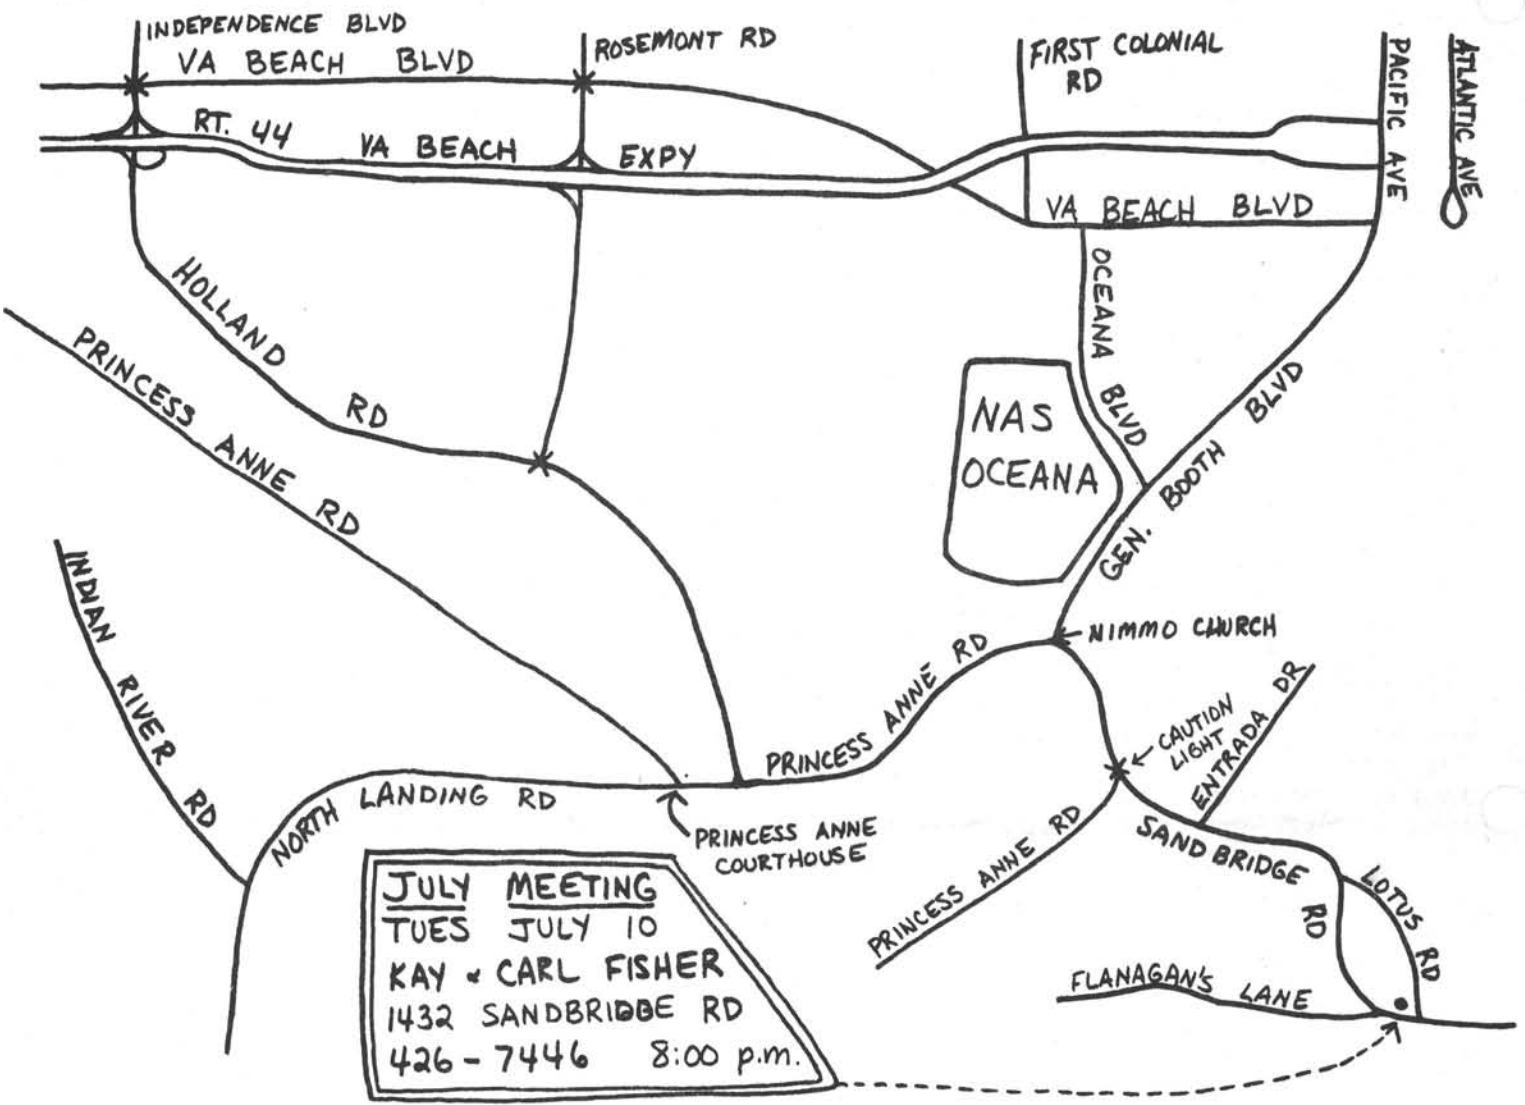 INDEPENDENCE BLVD
VA BEACH BLVD
ROSEMONT RD
FIRST COLONIAL
RD
PACIFIC AVE
ATLANTIC AVE
RT. 44 VA BEACH EXPY
VA BEACH BLVD
HOLLAND RD
OCEANA BLVD
PRINCESS ANNE RD
NAS
OCEANA
GEN. BOOTH BLVD
INDIAN RIVER RD
NIMMO CHURCH
PRINCESS ANNE RD
CAUTION
LIGHT
ENTRADA DR
NORTH LANDING RD
PRINCESS ANNE
COURTHOUSE
PRINCESS ANNE RD
SANDBRIDGE RD
LOTUS RD
FLANAGAN'S LANE
JULY MEETING
TUES JULY 10
KAY & CARL FISHER
1432 SANDBRIDGE RD
426-7446 8:00 p.m.